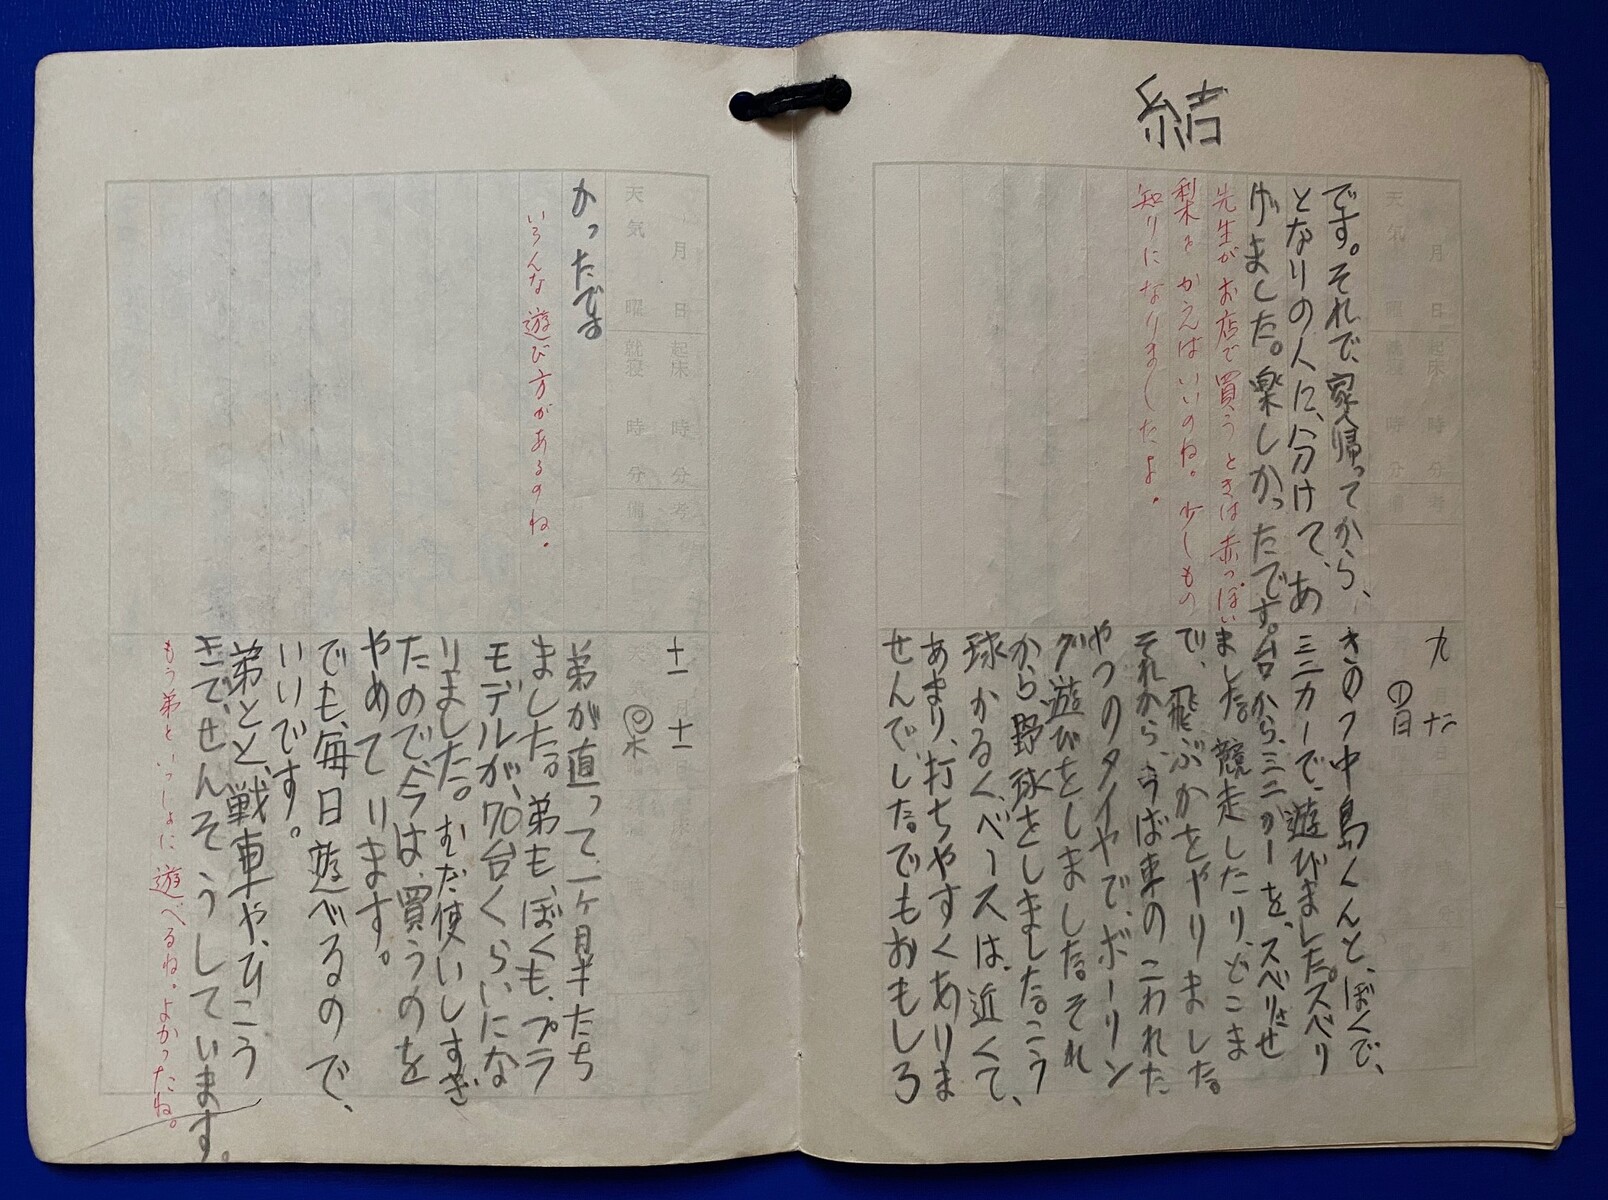 結
です。それで、家へ帰ってから、
となりの人に、分けて、あ
げました。楽しかったです。
先生がお店で買うときは赤っぽい
梨をかえばいいのね。少しもの
知りになりましたよ。
九
日
きのう中島くんと、ぼくで、
ミニカーで、遊びました。スベリ
台から、ミニカーを、スベリさせ
ました。競走したり、どこま
で、飛ぶかをやりました。
それから、うば車のこわれた
やつのタイヤで、ボーリン
グ遊びをしました。それ
から、野球をしました。こう
球かるく、ベースは、近くて、
あまり、打ちやすくありま
せんでした。でもおもしろ
天気 月 日 曜 起床 就寝 時 分 備考
かったです
いろんな遊び方があるのね。
十一 月 十一 日
木
弟が直って、一ヶ月半たち
ました。弟も、ぼくも、プラ
モデルが、70台くらいにな
りました。むだ使いしすぎ
たので、今は、買うのを
やめてります。
でも、毎日遊べるので、
いいです。
弟とと、戦車や、ひこう
きで、せんそうしています。
もう弟といっしょに遊べるね。よかったね。